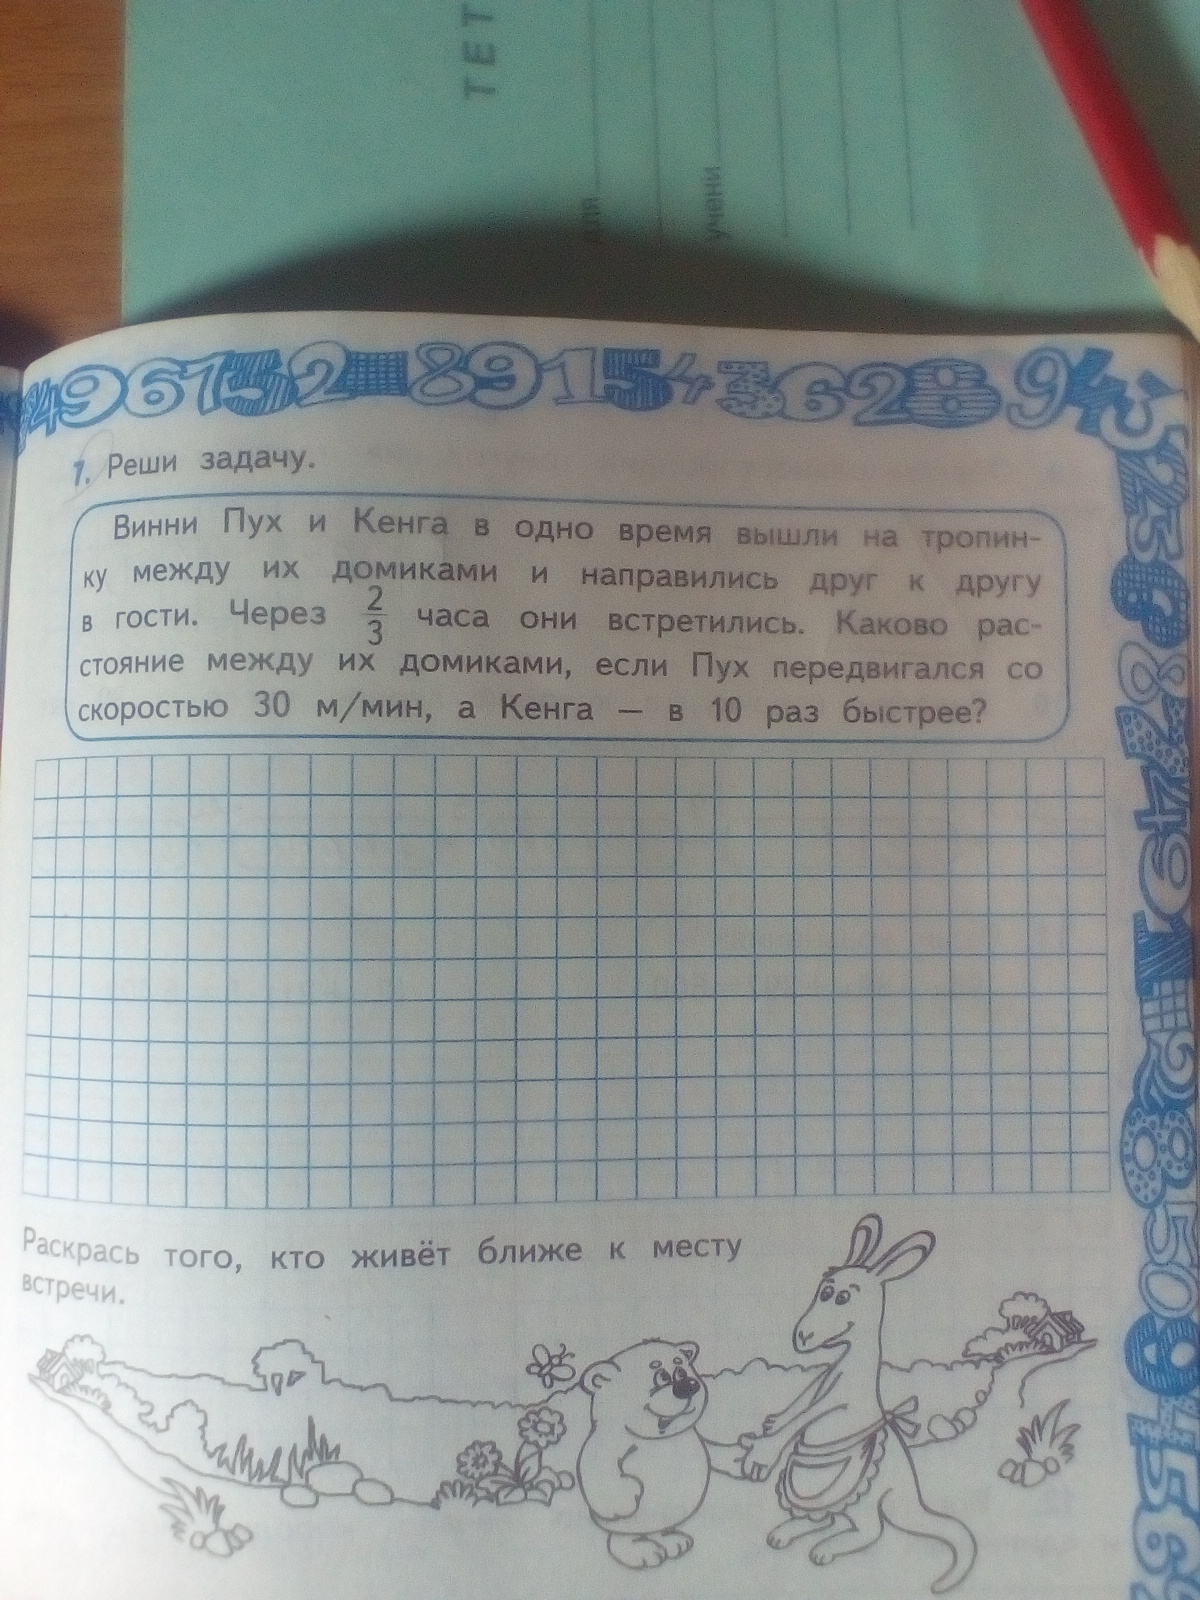 ТЕТ
для
учени
49673528915436289435
1. Реши задачу.
Винни Пух и Кенга в одно время вышли на тропин-
ку между их домиками и направились друг к другу
в гости. Через 2/3 часа они встретились. Каково рас-
стояние между их домиками, если Пух передвигался со
скоростью 30 м/мин, а Кенга — в 10 раз быстрее?
Раскрась того, кто живёт ближе к месту
встречи.